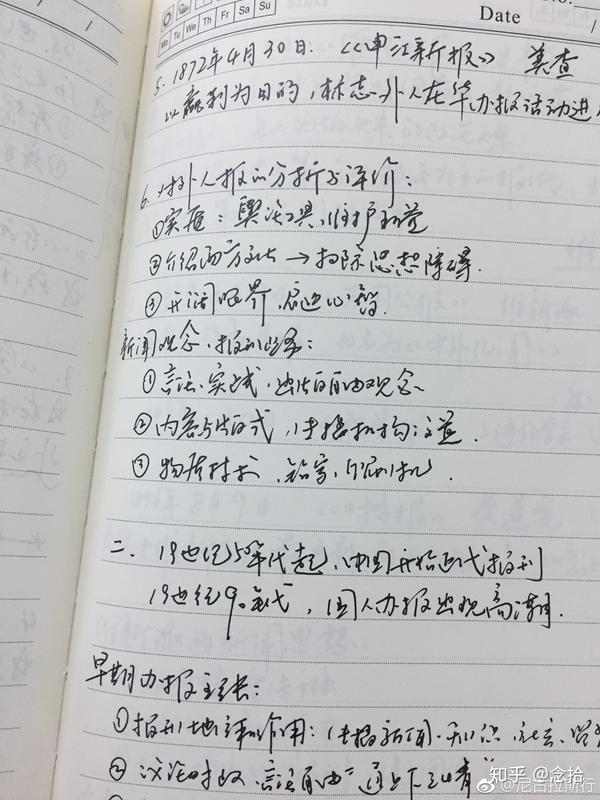 No.
Date
Mo Tu We Th Fr Sa Su
5. 1872年4月30日. 《申江新报》 美查
以赢利为目的，标志外人在华办报活动进
6. 对外人报的分析与评价：
①实质：舆论工具，维护利益
②介绍西方文化 → 扫除思想障碍.
③开阔眼界，启迪心智.
新闻观念，报刊业务：
①言论、实践，出版自由观念
②内容与版式，传播机构
③物质技术、铅字、印刷机.
二. 19世纪50年代起，中国开始近代报刊
19世纪90年代，国人办报出现高潮.
早期办报主张：
①报刊地位和作用：传播新闻、知识、社会、
②议论时政、言论自由"通上下之情"
知乎 @念拾
@尼古拉斯行